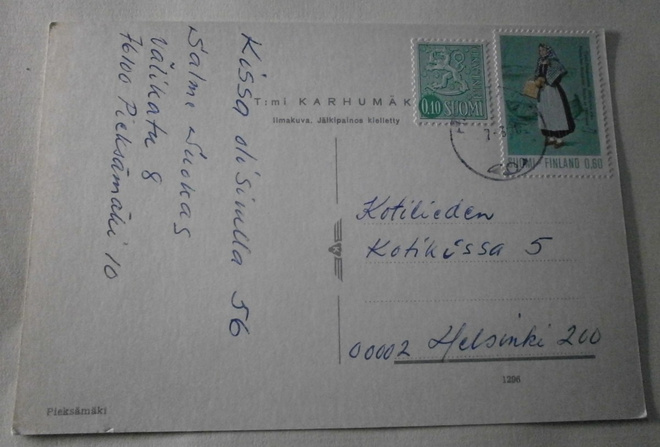 Kissa olisinulla 56
Salme Suokas
Välikatu 8
76100 Pieksämäki 10
T:mi KARHUMÄK
Ilmakuva. Jälkipainos kielletty
0,10 SUOMI
SUOMI FINLAND 0,60
Kotilieden
Kotikissa 5
00002 Helsinki 200
1296
Pieksämäki